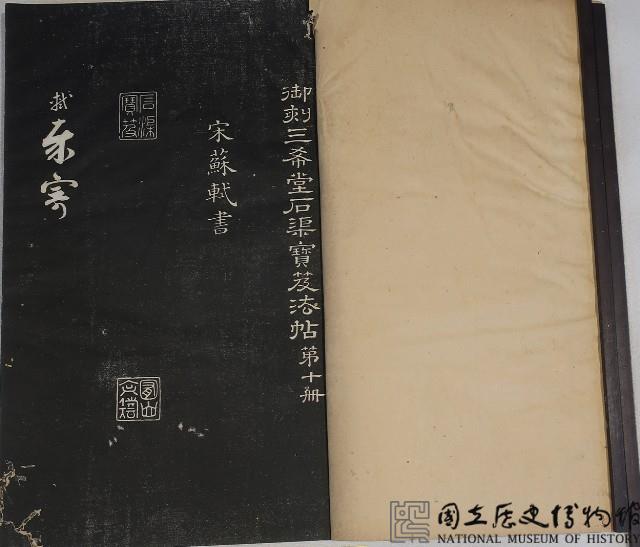 御刻三希堂石渠寶笈法帖第十冊
宋蘇軾書
石渠寶笈
軾
國立歷史博物館
NATIONAL MUSEUM OF HISTORY